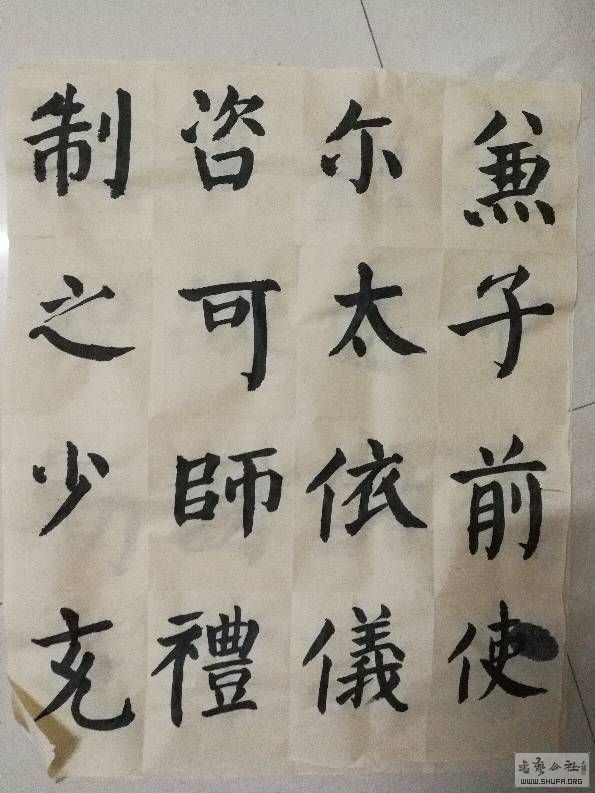 制咨尔兼
之可太子
少師依前
充禮儀使
书艺公社
WWW.SHUFA.ORG